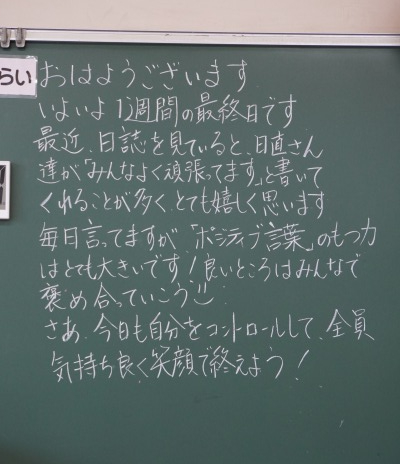 らい
おはようございます
いよいよ1週間の最終日です
最近、日誌を見ていると、日直さん
達が「みんなよく頑張ってます」と書いて
くれることが多く、とても嬉しく思います
毎日言ってますが「ポジティブ言葉」のもつ力
はとても大きいです！良いところはみんなで
褒め合っていこう
さあ、今日も自分をコントロールして、全員
気持ち良く、笑顔で終えよう！